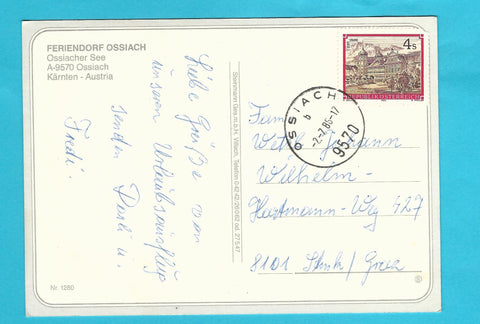 FERIENDORF OSSIACH
Ossiacher See
A-9570 Ossiach
Kärnten - Austria
Liebe Grüße von
unserem Urlaubsausflug
senden Pauli u.
Fredi.
Nr. 1280
Steinmann Ges.m.b.H. Villach, Telefon 0 42 42/26 0 62 od. 27 5 47
4s
REPUBLIK ÖSTERREICH
OSSIACH
b
-2.-7.86-17
9570
Fam.
Johann
Wilhelm-
Hartmann-Weg 427
8101 / Graz